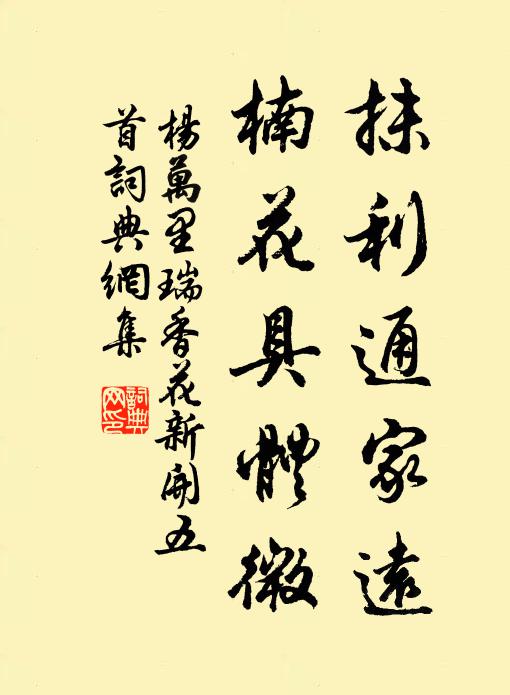 抹利通家遠
楠花具體微
楊萬里瑞香花新開五
首詞典網集
詞典
网印